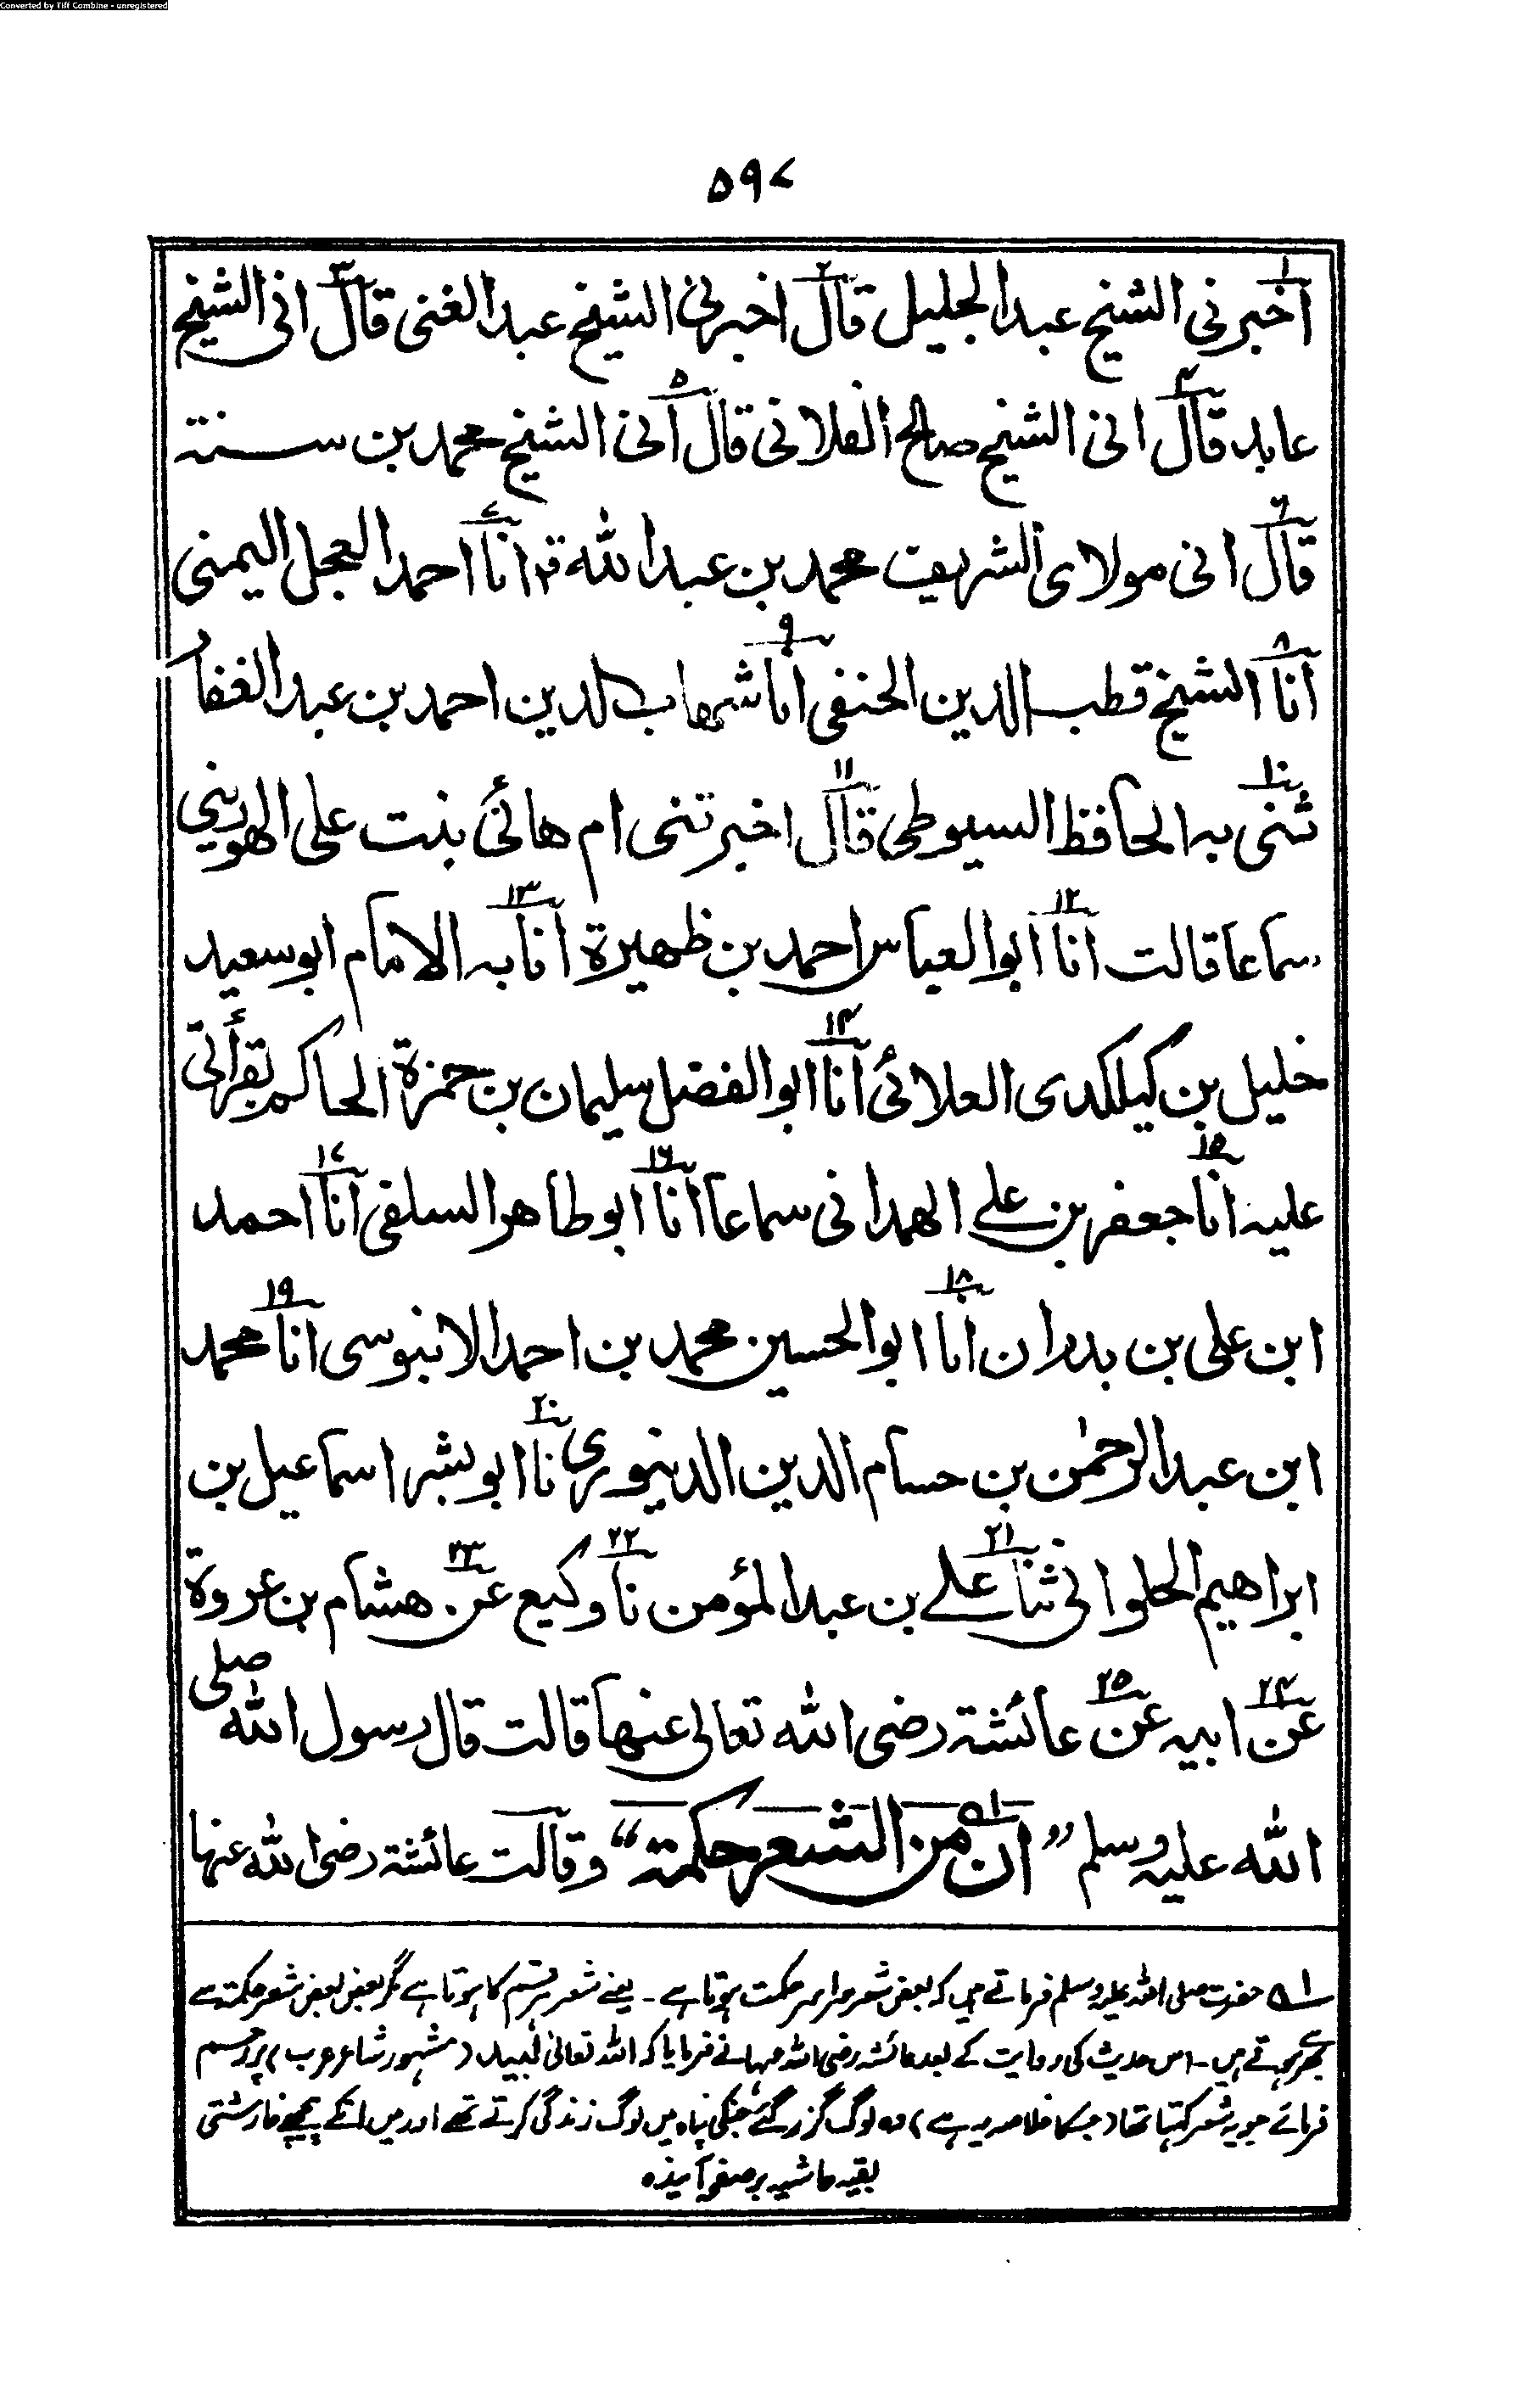 Converted by Tiff Combine - unregistered
۵۹۷
اخبرنی الشیخ عبد الجلیل قال اخبرنی الشیخ عبد الغنی قال انی الشیخ
عابد قال انی الشیخ صالح الفلانی قال انی الشیخ محمد بن سنة
قال انی مولای الشریف محمد بن عبد الله قر انا احمد العجل الیمنی
انا الشیخ قطب الدین الحنفی انا شهاب الدین احمد بن عبد الغفار
ثنی به الحافظ السیوطی قال اخبرتنی ام هانئ بنت علی الهورینی
سماعا قالت انا ابو العباس احمد بن ظهیرة انا به الامام ابو سعید
خلیل بن کیلکدی العلائی انا ابو الفضل سلیمان بن حمزة الحاکم بقرأتی
علیه انا جعفر بن علی الهمدانی سماعا انا ابو طاهر السلفی انا احمد
ابن علی بن بدران انا ابو الحسین محمد بن احمد الابنوسی انا محمد
ابن عبد الرحمٰن بن حسام الدین الدینوری نا ابو بشر اسماعیل بن
ابراهیم الحلوانی ثنا علی بن عبد المؤمن نا وکیع عن هشام بن عروة
عن ابیه عن عائشة رضی الله تعالی عنها قالت قال رسول الله صلی
الله علیه وسلم ”ان من الشعر حکمة“ وقالت عائشة رضی الله عنها
۱ حضرت صلی اللہ علیہ وسلم فرماتے ہیں کہ بعض شعر سراسر حکمت ہوتا ہے ۔ یعنے شعر ہر قسم کا ہوتا ہے مگر بعض بعض شعر حکمت سے
بھرے ہوتے ہیں ۔ اس حدیث کی روایت کے بعد عائشہ رضی اللہ عنہا نے فرمایا کہ اللہ تعالیٰ لبید (مشہور شاعر عرب) پر رحم
فرمائے جو یہ شعر کہتا تھا (جسکا خلاصہ یہ ہے) وہ لوگ گزر گئے جنکی پناہ میں لوگ زندگی کرتے تھے اور میں انکے پیچھے خارشتی
بقیہ حاشیہ بر صفحہ آیندہ